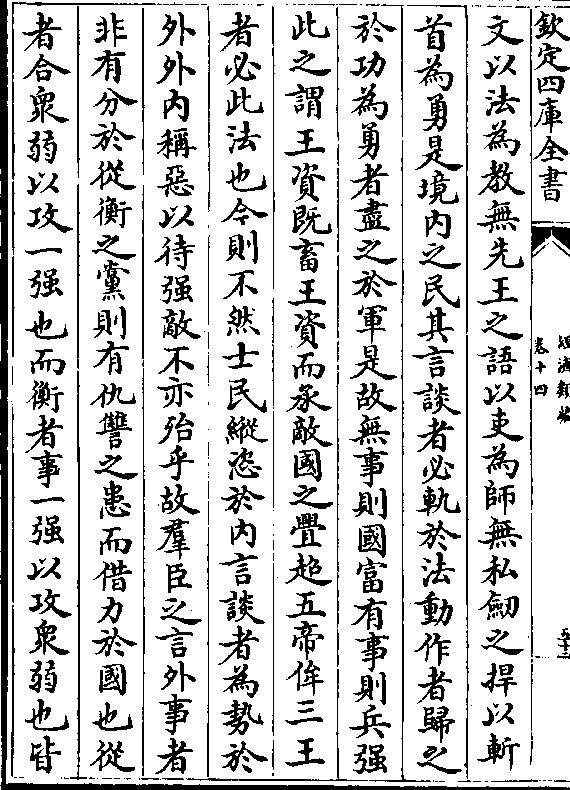 欽定四庫全書
卷十四
文以法為教無先王之語以吏為師無私劒之捍以斬
首為勇是境内之民其言談者必軌於法動作者歸之
於功為勇者盡之於軍是故無事則國富有事則兵强
此之謂王資既畜王資而承敵國之舋超五帝侔三王
者必此法也今則不然士民縱恣於内言談者為勢於
外外内稱惡以待强敵不亦殆乎故羣臣之言外事者
非有分於從衡之黨則有仇讐之患而借力於國也從
者合衆弱以攻一强也而衡者事一强以攻衆弱也皆